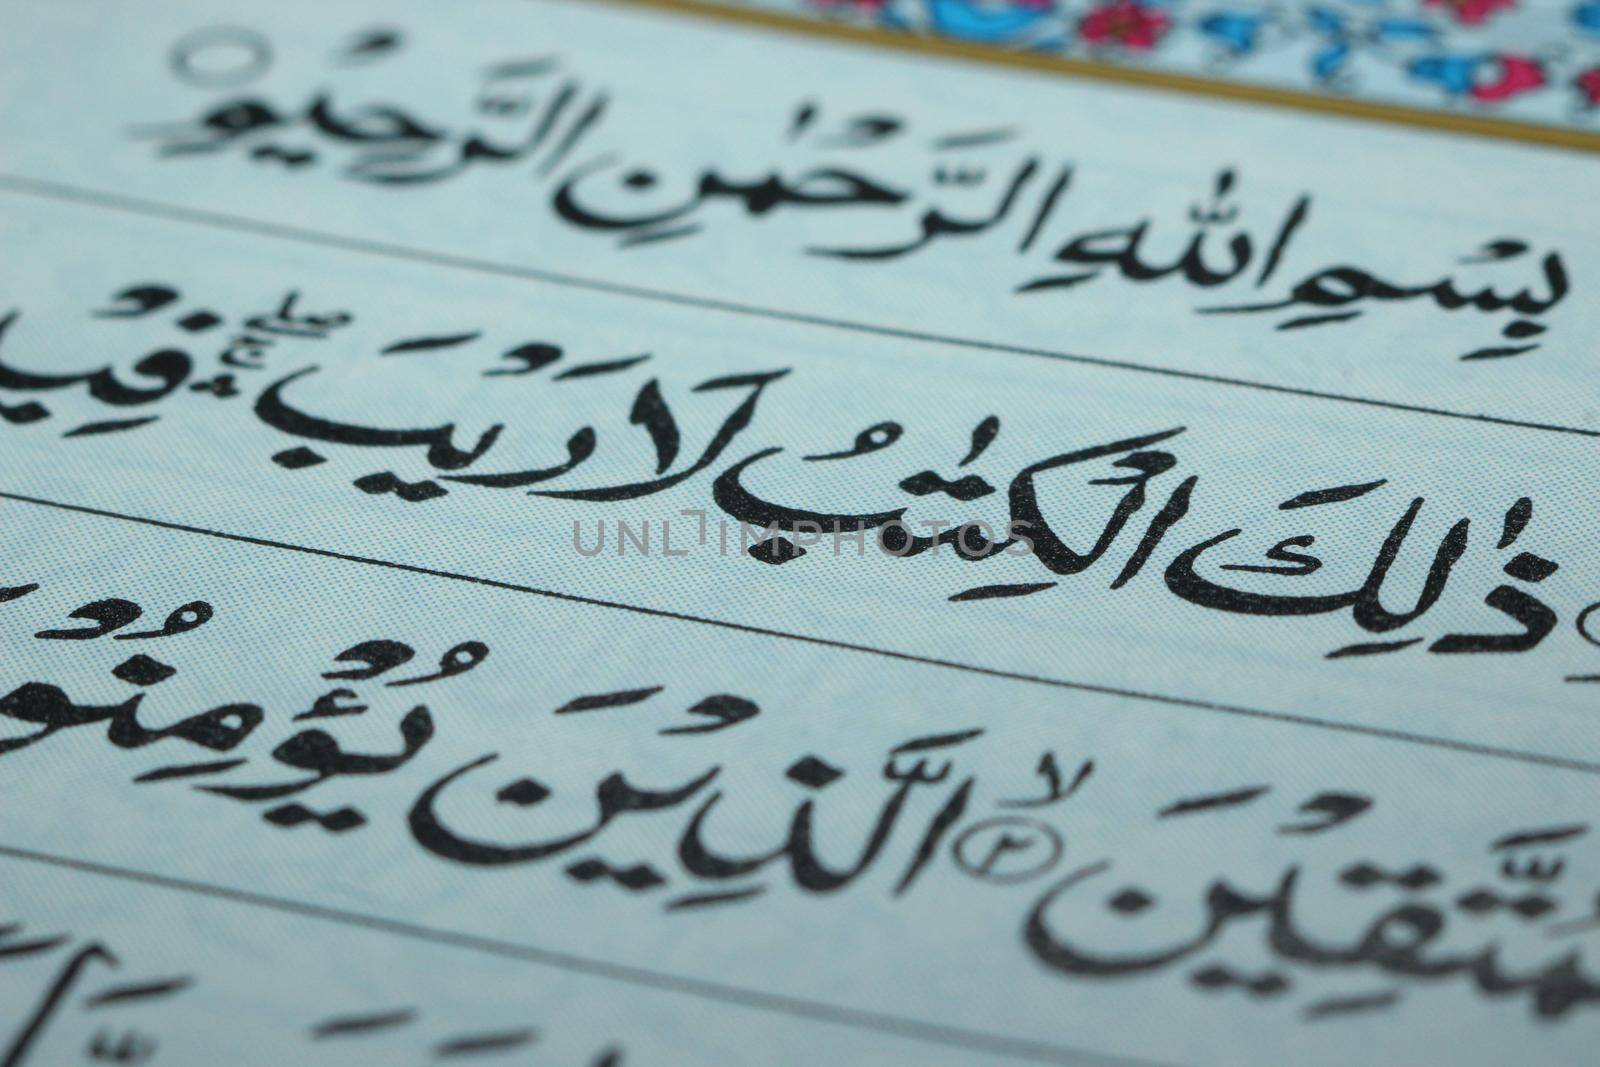 بِسْمِ اللهِ الرَّحْمٰنِ الرَّحِيْمِ
ذٰلِكَ الْكِتٰبُ لَا رَيْبَ ۛۚۖ فِيْ
الَّذِيْنَ يُؤْمِنُوْ ۙ﴿۲﴾ مُتَّقِيْنَ
UNLIMPHOTOS